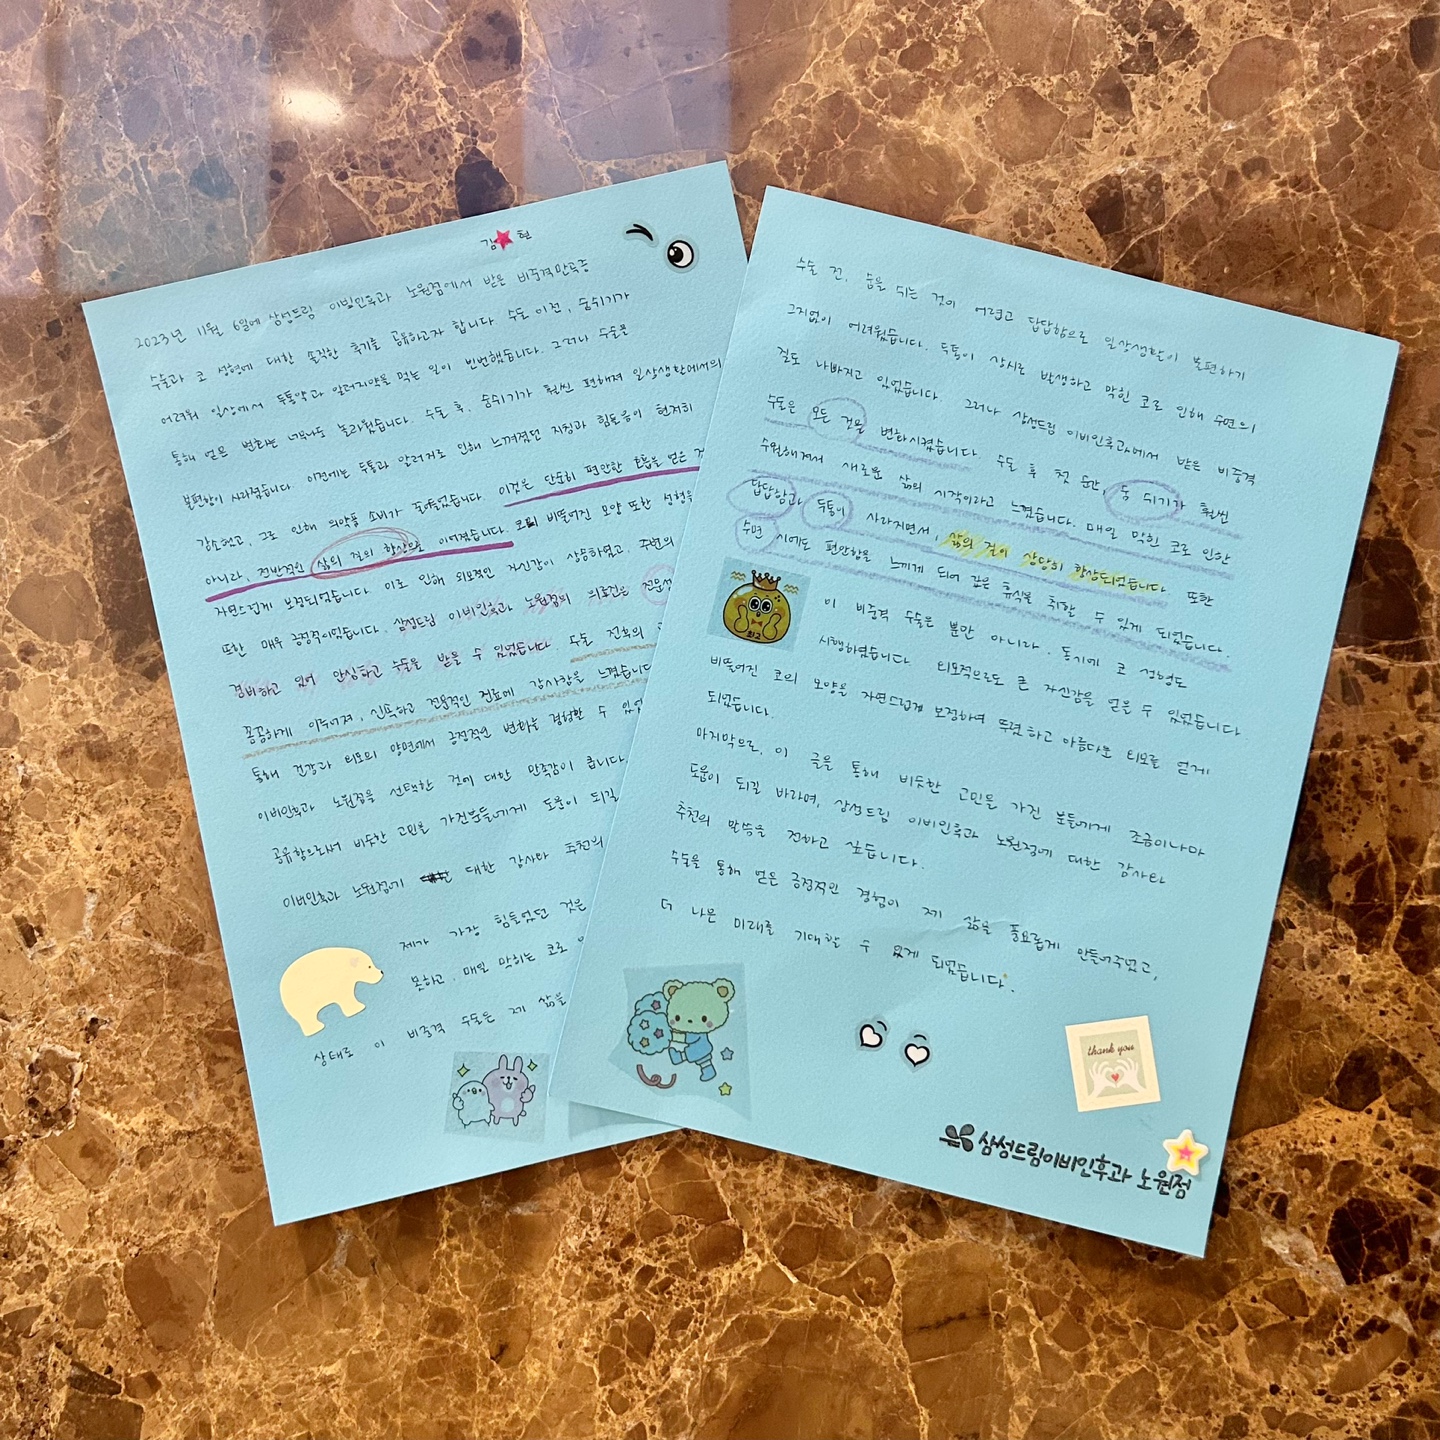 김 현
2023년 11월 6일에 삼성드림 이빈인후과 노원점에서 받은 비중격만곡증
수술과 코 성형에 대한 솔직한 후기를 공유하고자 합니다 수술 이전, 숨쉬기가
어려워 일상에서 두통약과 알러지약을 먹는 일이 빈번했습니다. 그러나 수술을
통해 얻은 변화는 너무나도 놀라웠습니다. 수술 후, 숨쉬기가 훨씬 편해져 일상생활에서의
불편함이 사라졌습니다. 이전에는 두통과 알러지로 인해 느껴졌던 지침과 힘듦이 현저히
감소했고, 그로 인해 의약품 소비가 줄어들었습니다 이것은 단순히 편안한 호흡을 얻은
아니라, 전반적인 삶의 질의 향상으로 이어졌습니다. 코의 비뚤어진 모양 또한 성형을
자연스럽게 보정되었습니다 이로 인해 외모적인 자신감이 상승하였고, 주변의
또한 매우 긍정적이었습니다. 삼성드림 이비인후과 노원점의 의료진은 전문성
겸비하고 있어 안심하고 수술을 받을 수 있었습니다. 수술 전후의
꼼꼼하게 이루어져, 신속하고 전용적인 진료에 감사함을 느꼈습니다
통해 건강과 외모의 양면에서 긍정적인 변화를 경험할 수 있었
이비인후과 노원점을 선택한 것에 대한 만족감이 큽니다.
공유함으로써 비슷한 고민을 가진분들에게 도움이 되길
이비인후과 노원점에 대한 감사와 추천의
제가 가장 힘들었던 것은
못하고, 매일 막히는 코로
비중격 수술은 제 삶을
상태로 이
수술 전, 숨을 쉬는 것이 어렵고 답답함으로 일상생활이 불편하기
그지없이 어려웠습니다. 두통이 상시로 발생하고 막힌 코로 인해 수면의
질도 나빠지고 있었습니다. 그러나 삼성드림 이비인후과에서 받은 비중격
수술은 모든 것을 변화시켰습니다. 수술 후 첫 순간, 숨 쉬기가 훨씬
수월해져서 새로운 삶의 시작이라고 느꼈습니다. 매일 막힌 코로 인한
답답함과 두통이 사라지면서, 삶의 질이 상당히 향상되었습니다 또한
수면 시에도 편안함을 느끼게 되어 깊은 휴식을 취할 수 있게 되었습니다.
최고
이 비중격 수술은 뿐만 아니라, 동시에 코 성형도
시행하였습니다. 외모적으로도 큰 자신감을 얻을 수 있었습니다.
비뚤어진 코의 모양을 자연스럽게 보정하여 뚜렷하고 아름다운 외모를 얻게
되었습니다.
마지막으로, 이 글을 통해 비슷한 고민을 가진 분들에게 조금이나마
도움이 되길 바라며, 삼성드림 이비인후과 노원점에 대한 감사와
추천의 말씀을 전하고 싶습니다.
수술을 통해 얻은 긍정적인 경험이 제 삶을 풍요롭게 만들어주었고,
더 나은 미래를 기대할 수 있게 되었습니다.
thank you
삼성드림이비인후과 노원점